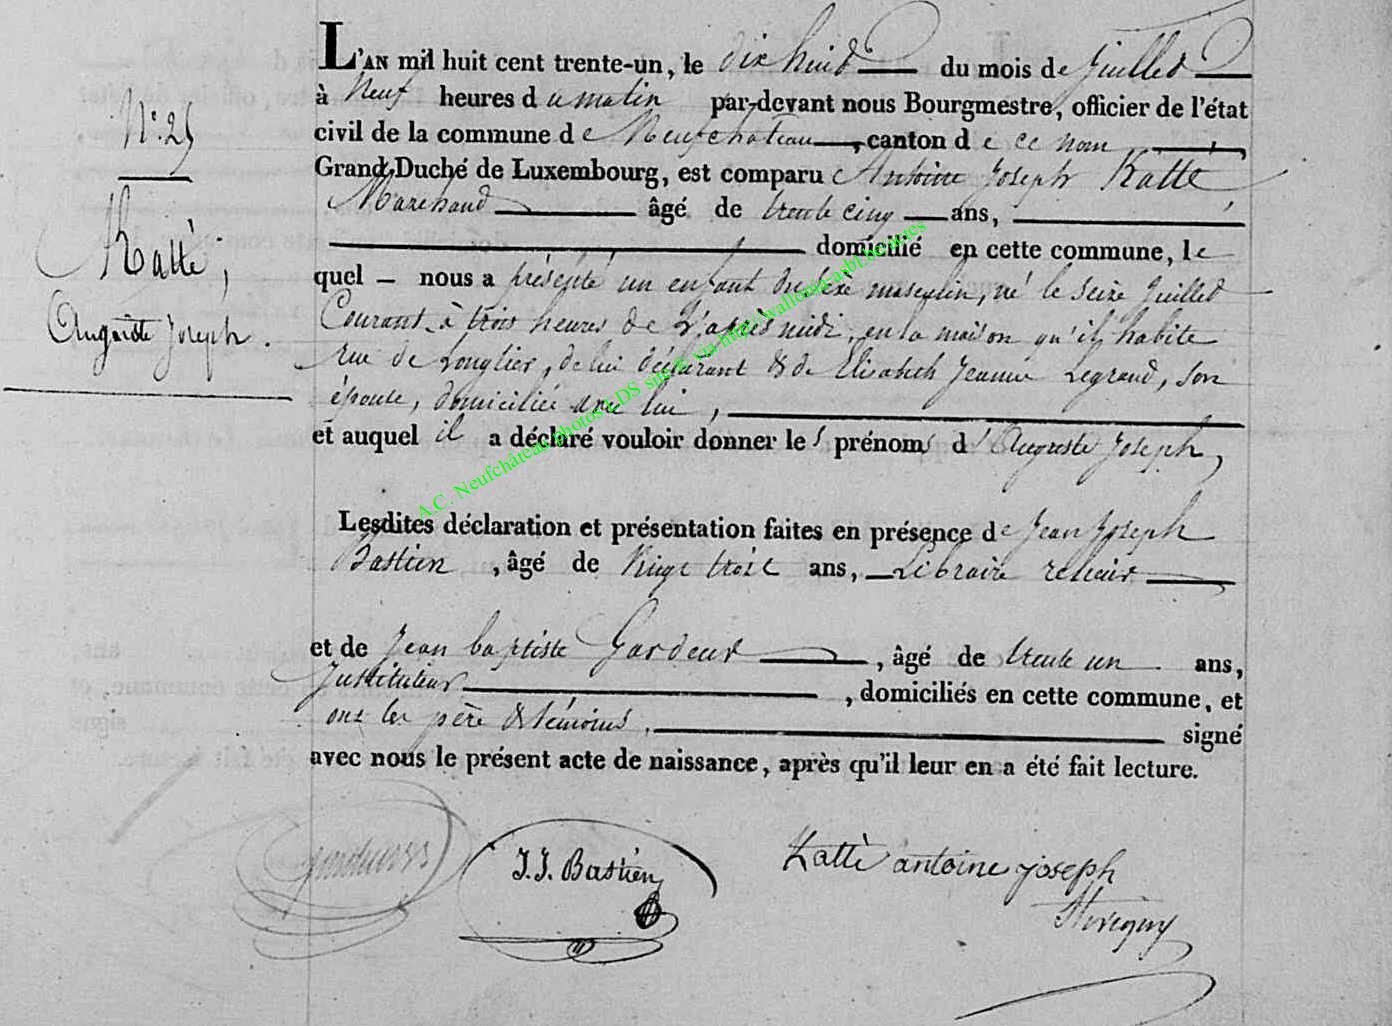 L'AN mil huit cent trente-un, le dix huit du mois de Juillet
à Neuf heures du matin par-devant nous Bourgmestre, officier de l'état
civil de la commune de Neufchateau, canton de ce nom
Grand-Duché de Luxembourg, est comparu Antoine Joseph Katté
Marchand âgé de trente cinq ans,
domicilié en cette commune, le
quel nous a présenté un enfant du sexe masculin, né le seize Juillet
Courant, à trois heures de l'après midi, en la maison qu'il habite
rue de Longlier, de lui déclarant & de Elisabeth Jeanne Legrand, son
épouse, domiciliée avec lui,
et auquel il a déclaré vouloir donner les prénoms d'Auguste Joseph,
Lesdites déclaration et présentation faites en présence de Jean Joseph
Bastien, âgé de Vingt trois ans, Libraire relieur
et de Jean baptiste Gardeur, âgé de trente un ans,
Instituteur, domiciliés en cette commune, et
ont les père & témoins, signé
avec nous le présent acte de naissance, après qu'il leur en a été fait lecture.
N.° 25
Katté,
Auguste Joseph.
A.C. Neufchâteau photos LDS
J. J. Bastien
Katté antoine joseph